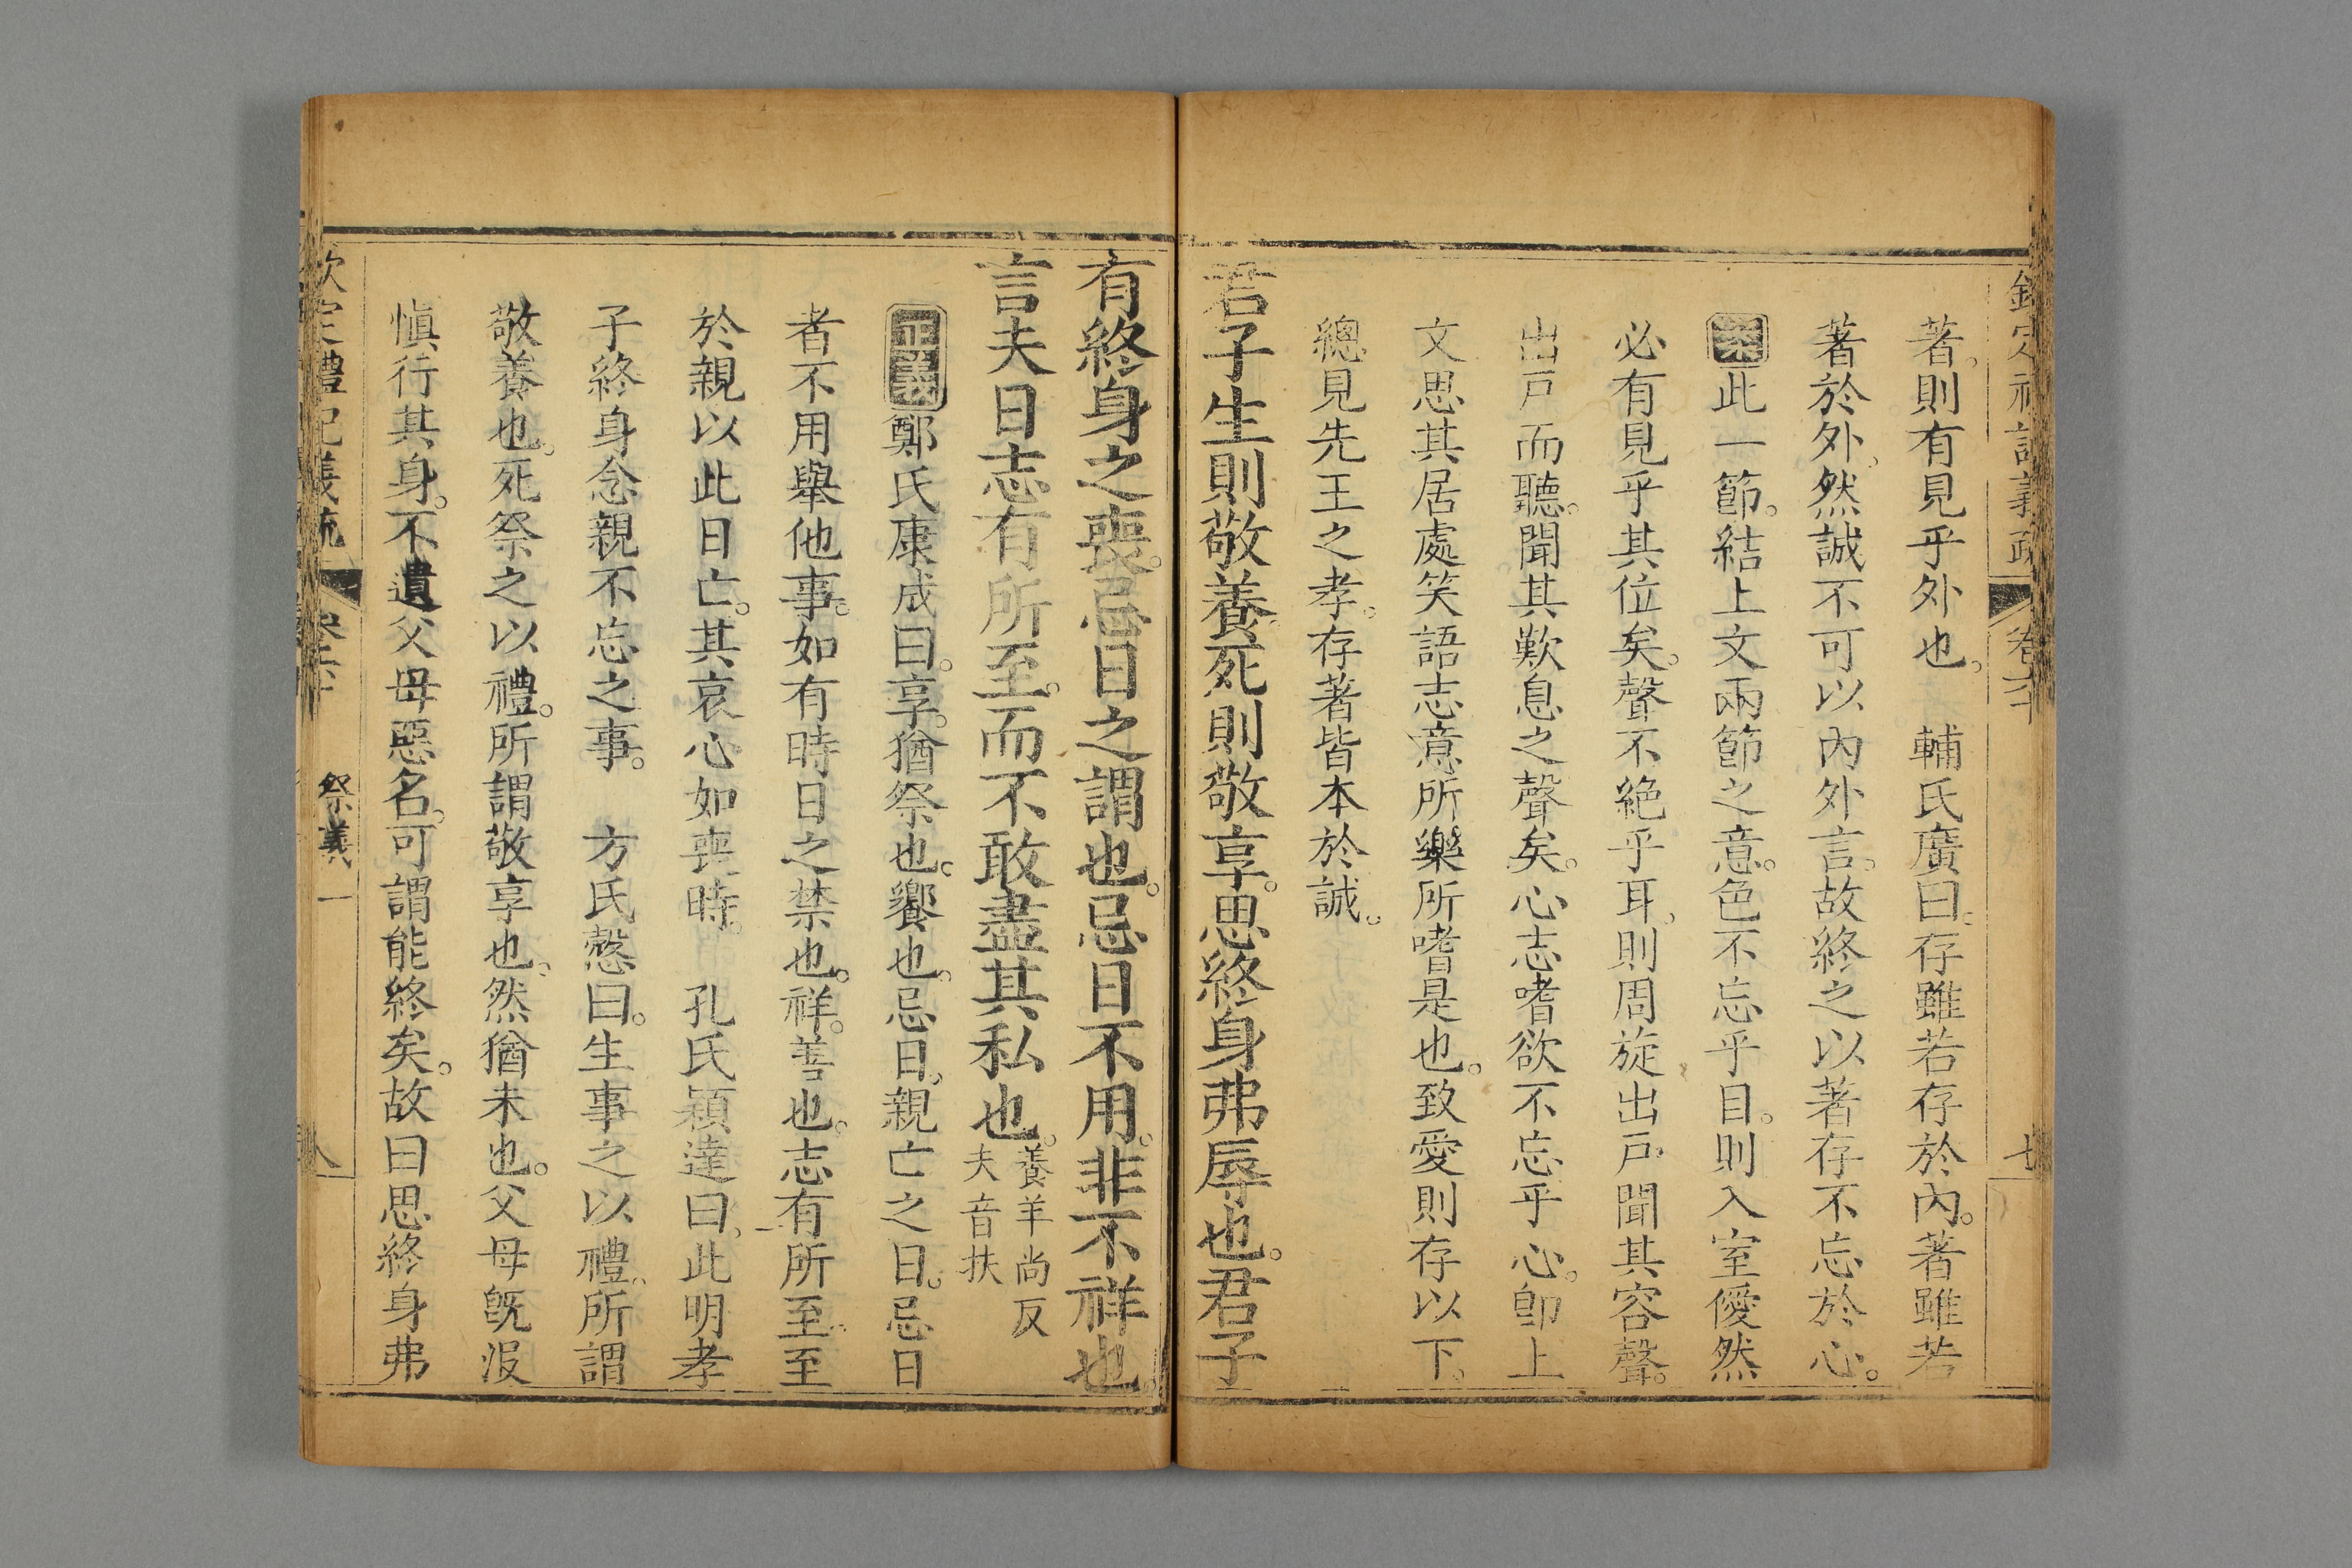 欽定禮記義疏 卷六十 七
著。則有見乎外也。 輔氏廣曰。存雖若存於內。著雖若
著於外。然誠不可以內外言。故終之以著存不忘於心。
案此一節。結上文兩節之意。色不忘乎目。則入室僾然
必有見乎其位矣。聲不絶乎耳。則周旋出戸聞其容聲。
出戸而聽。聞其歎息之聲矣。心志嗜欲不忘乎心。卽上
文思其居處笑語志意所樂所嗜是也。致愛則存以下。
總見先王之孝。存著皆本於誠。
君子生則敬養死則敬享。思終身弗辱也。君子
有終身之喪。忌日之謂也。忌日不用。非不祥也。
言夫日志有所至。而不敢盡其私也。養羊尚反夫音扶
正義鄭氏康成曰。享。猶祭也。饗也。忌日。親亡之日。忌日
者不用舉他事。如有時日之禁也。祥。善也。志有所至。至
於親以此日亡。其哀心如喪時。 孔氏穎達曰。此明孝
子終身念親不忘之事。 方氏慤曰。生事之以禮。所謂
敬養也。死祭之以禮。所謂敬享也。然猶未也。父母旣沒
愼行其身。不遺父母惡名。可謂能終矣。故曰思終身弗
欽定禮記義疏 卷六十 祭義一 八